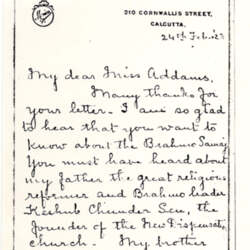 210 CORNWALLIS STREET,
CALCUTTA.
24th Feb. 23
My dear Miss Addams,
Many thanks for
your letter. I am so glad
to hear that you want to
know about the Brahmo Samaj
You must have heard about
my father the great religious
reformer and Brahmo leader
Keshub Chunder Sen, the
founder of the New Dispensation
Church. My brother